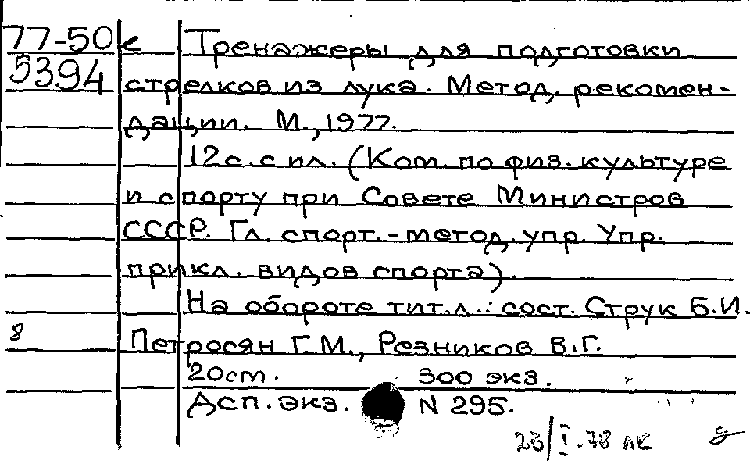 77-50 е Тренажеры для подготовки
5394 стрелков из лука. Метод. рекомен-
дации. М., 1977.
12с. с ил. (Ком. по физ. культуре
и спорту при Совете Министров
СССР. Гл. спорт.-метод. упр. Упр.
прикл. видов спорта).
На обороте тит. л.: сост. Струк Б.И.
8 Петросян Г.М., Резников В.Г.
20ст. 300 экз.
Дсп. экз. N 295.
23/I.78